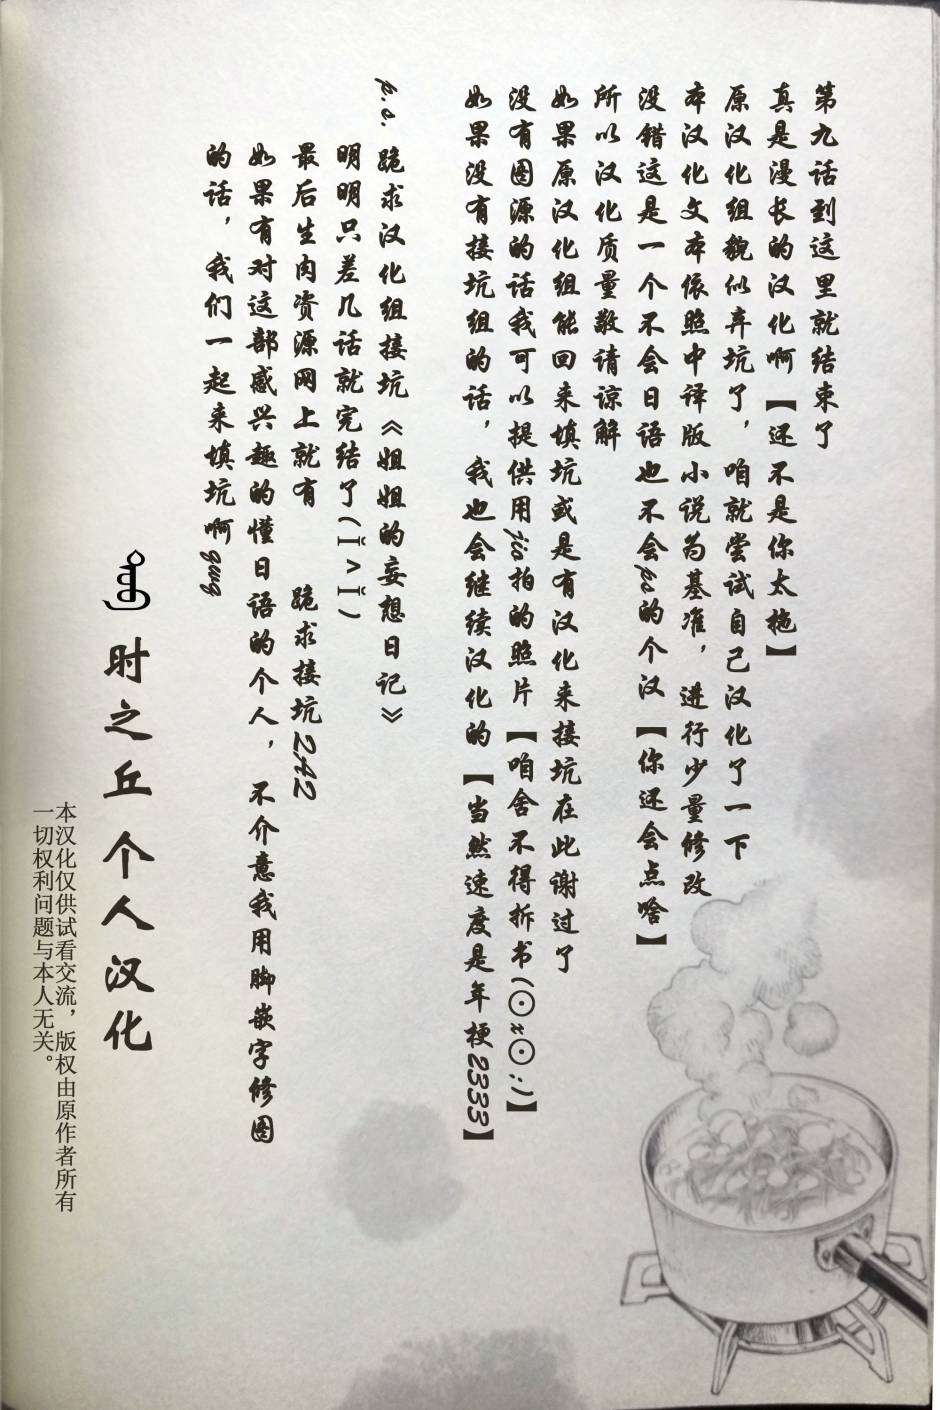 第九话到这里就结束了
真是漫长的汉化啊【还不是你太拖】
原汉化组貌似弃坑了，咱就尝试自己汉化了一下
本汉化文本依照中译版小说为基准，进行少量修改
没错这是一个不会日语也不会ps的个汉【你还会点啥】
所以汉化质量敬请谅解
如果原汉化组能回来填坑或是有汉化来接坑在此谢过了
没有图源的话我可以提供用jio拍的照片【咱舍不得拆书(⊙x⊙;)】
如果没有接坑组的话，我也会继续汉化的【当然速度是年梗2333】
p.s.跪求汉化组接坑《姐姐的妄想日记》
明明只差几话就完结了(Ｉˇ^ˇＩ)
最后生肉资源网上就有 跪求接坑2A2
如果有对这部感兴趣的懂日语的个人，不介意我用脚嵌字修图
的话，我们一起来填坑啊qwq
时之丘个人汉化
本汉化仅供试看交流，版权由原作者所有
一切权利问题与本人无关。